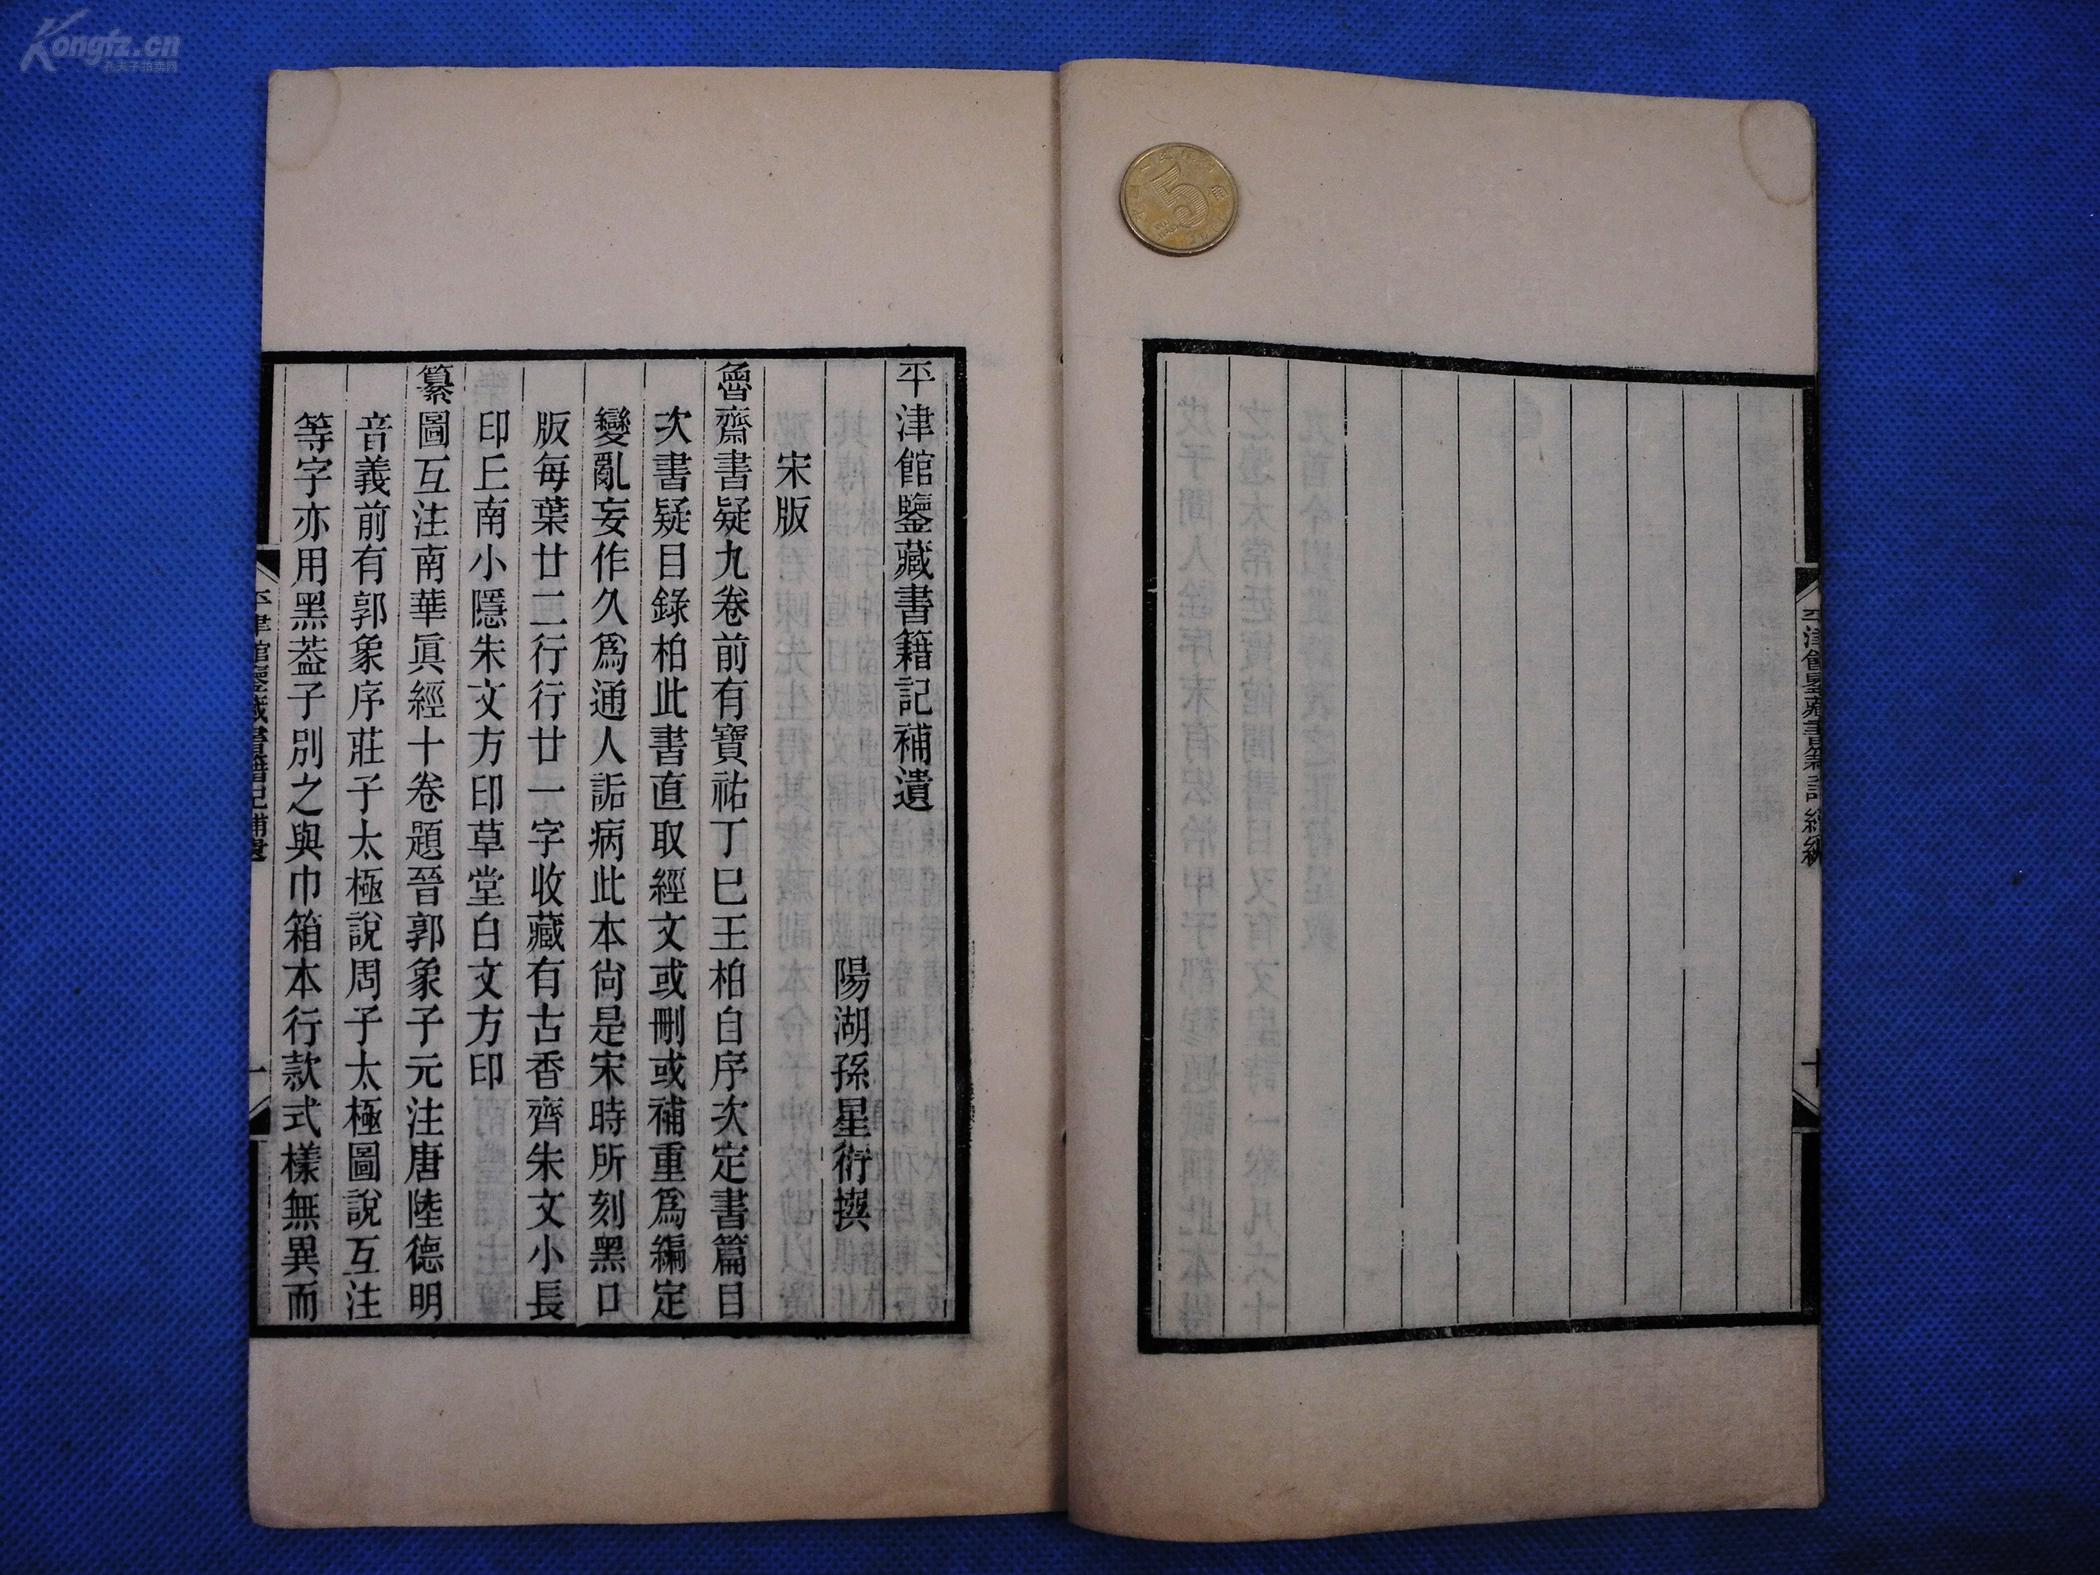 Kongfz.cn
孔夫子拍卖网
5
平津館鑒藏書籍記續編
十
平津館鑒藏書籍記補遺
陽湖孫星衍撰
宋版
魯齋書疑九卷前有寶祐丁巳王柏自序次定書篇目
次書疑目錄柏此書直取經文或刪或補重爲編定
變亂妄作久爲通人詬病此本尙是宋時所刻黑口
版每葉廿二行行廿一字收藏有古香齊朱文小長
印丘南小隱朱文方印草堂白文方印
纂圖互注南華眞經十卷題晉郭象子元注唐陸德明
音義前有郭象序莊子太極說周子太極圖說互注
等字亦用黑葢子別之與巾箱本行款式樣無異而
平津館鑒藏書籍記補遺
一